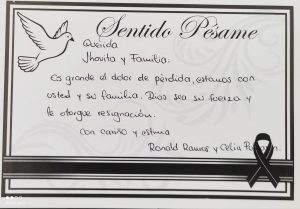 Sentido Pésame
Querida
Jhovita y Familia:
Es grande el dolor de pérdida, estamos con
usted y su familia. Dios sea su fuerza y
le otorgue resignación.
Con cariño y estima
Ronald Ramos y Celia